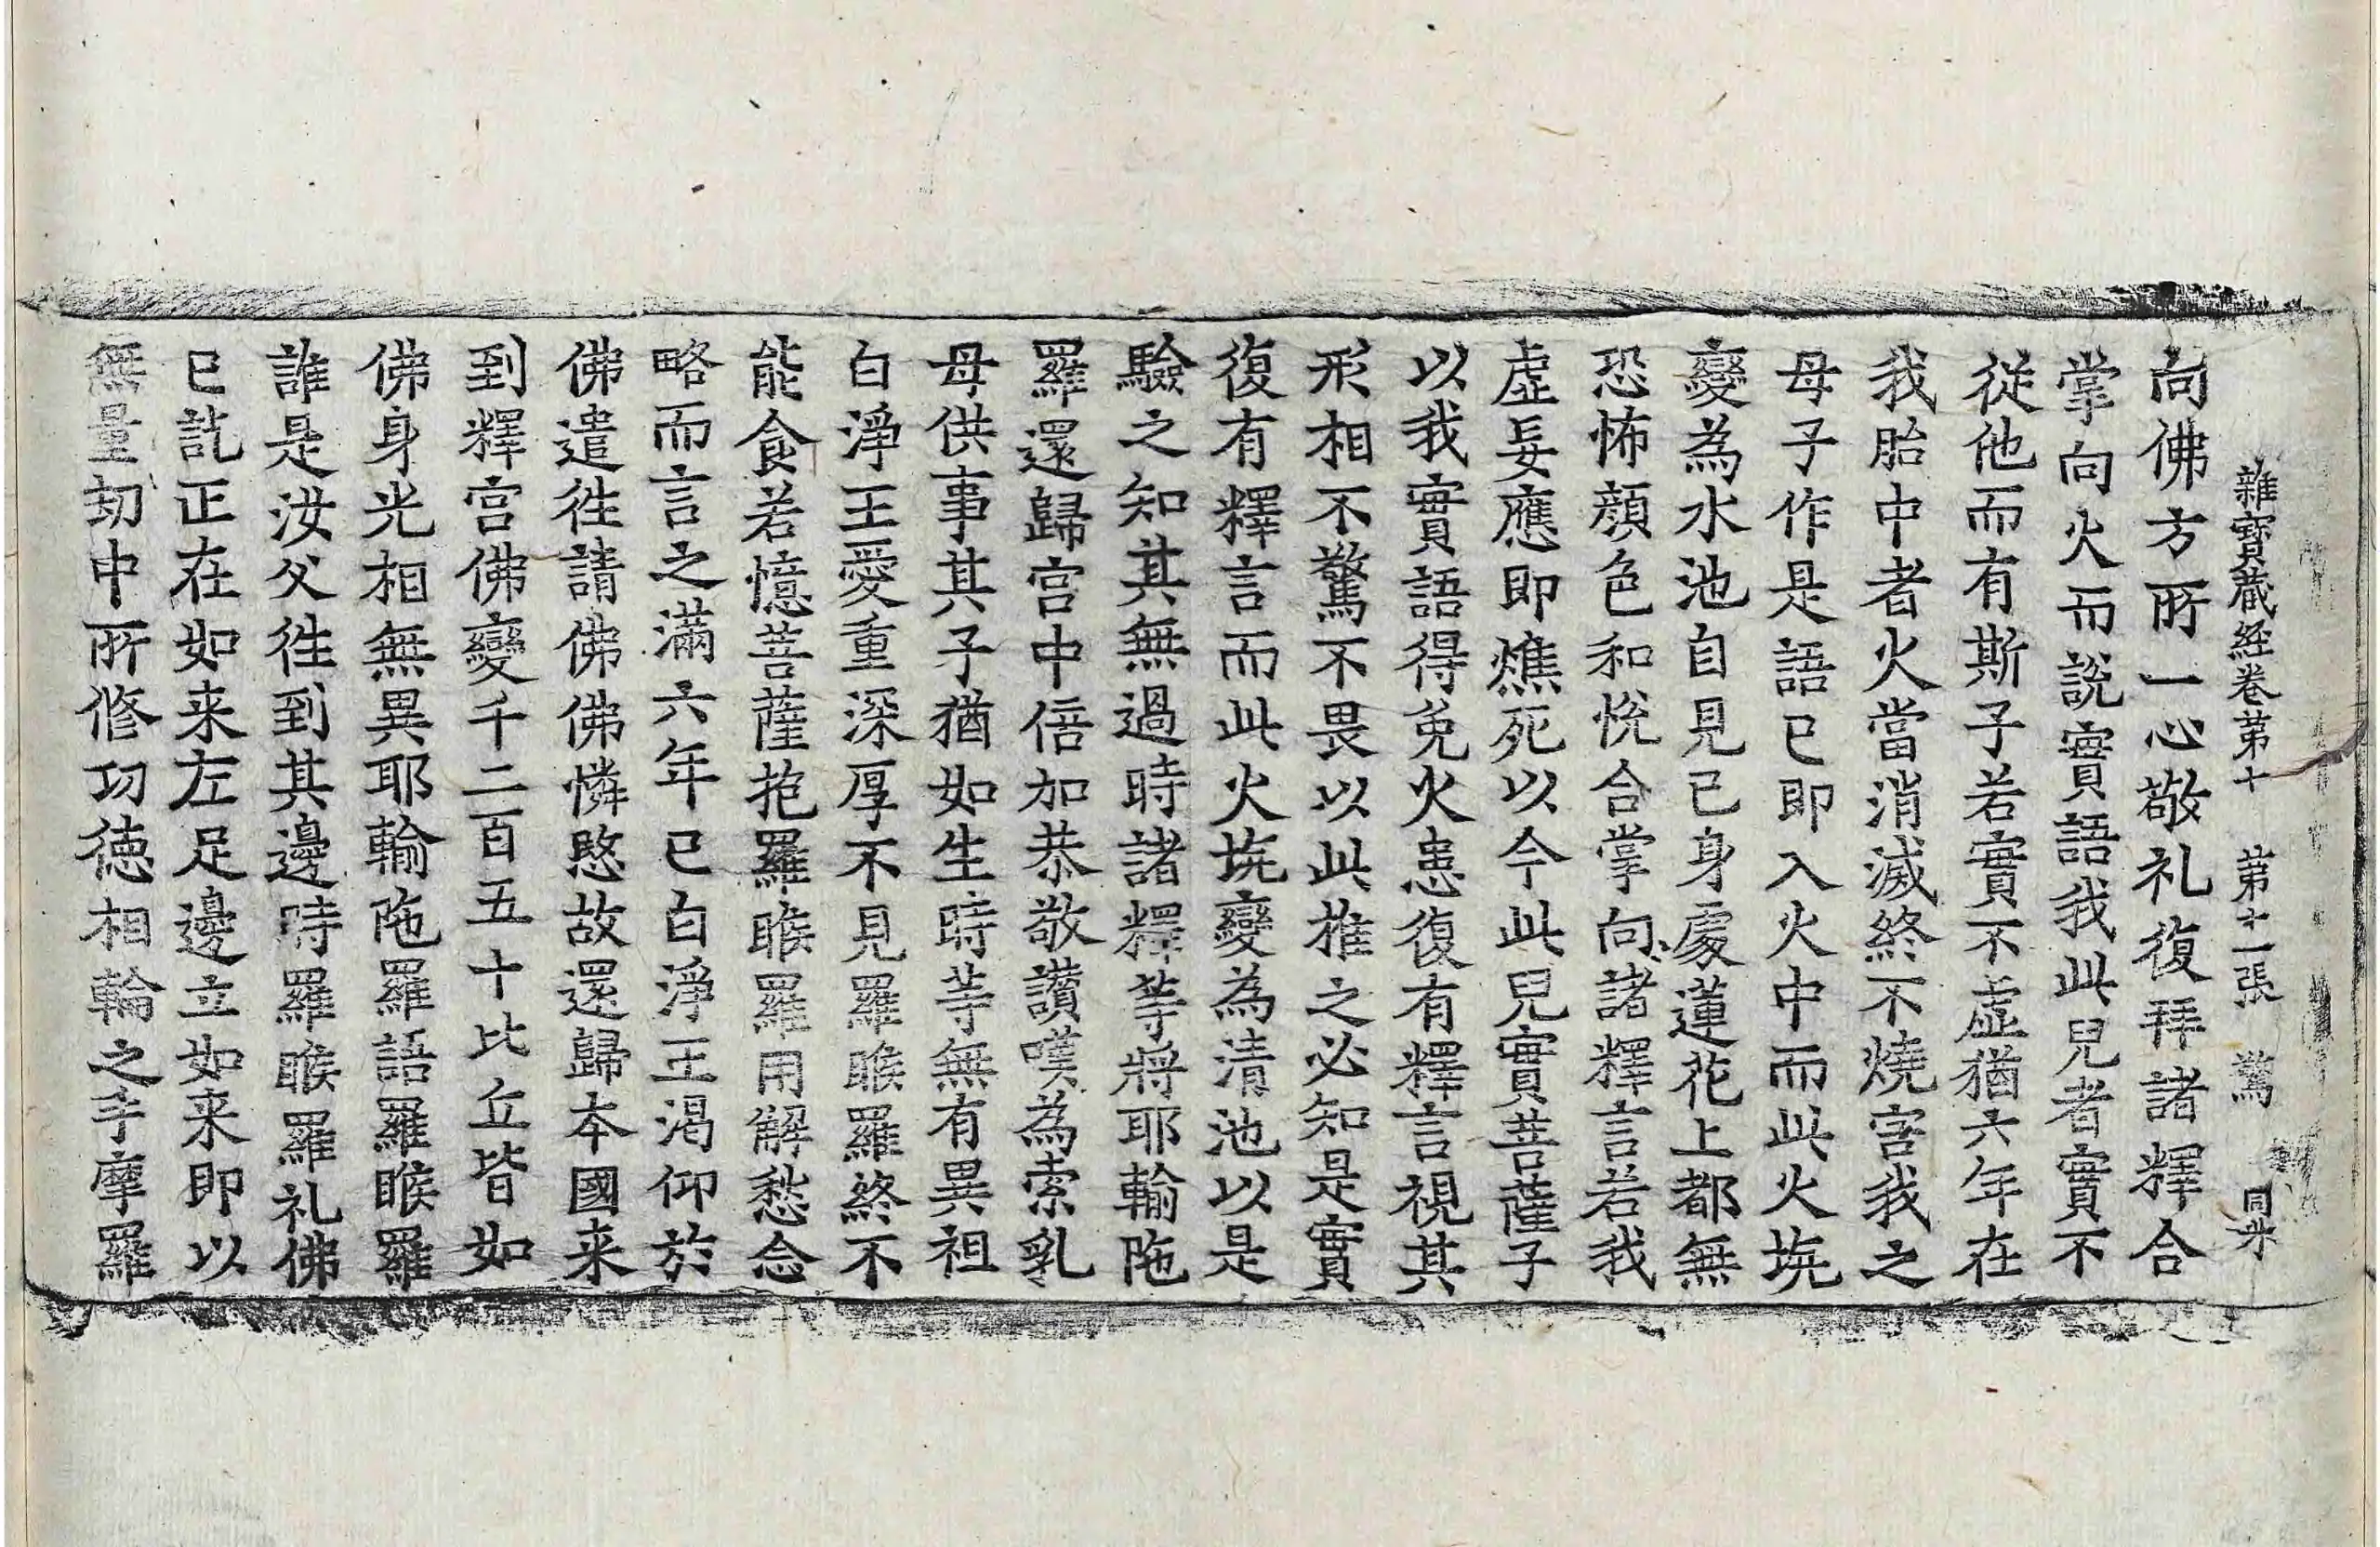 雜寶蔵経卷第十 第十一張 驚 同米
向佛方所一心敬礼復拜諸釋合
掌向火而說實語我此兒者實不
從他而有斯子若實不虛猶六年在
我胎中者火當消滅終不燒害我之
母子作是語已即入火中而此火坑
變為水池自見己身處蓮花上都無
恐怖顔色和悅合掌向諸釋言若我
虛妄應即燋死以今此兒實菩薩子
以我實語得免火患復有釋言視其
形相不驚不畏以此推之必知是實
復有釋言而此火坑變為清池以是
驗之知其無過時諸釋等將耶輸陁
羅還歸宮中倍加恭敬讃嘆為索乳
母供事其子猶如生時等無有異祖
白淨王愛重深厚不見羅睺羅終不
能食若憶菩薩抱羅睺羅用解愁念
略而言之滿六年已白淨王渴仰於
佛遣徃請佛佛憐愍故還歸本國来
到釋宮佛變千二百五十比丘皆如
佛身光相無異耶輸陁羅語羅睺羅
誰是汝父徃到其邊時羅睺羅礼佛
已訖正在如来左足邊立如来即以
無量劫中所修功徳相輪之手摩羅